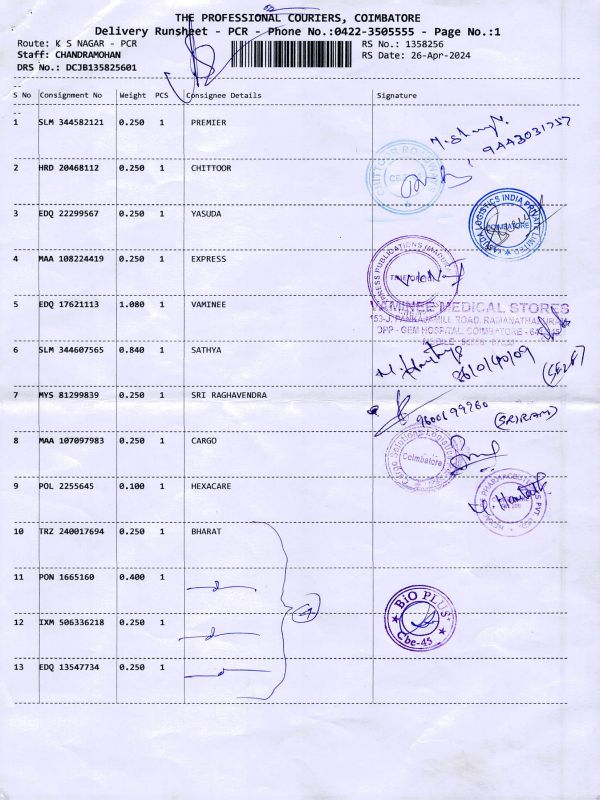 THE PROFESSIONAL COURIERS, COIMBATORE
Delivery Runsheet - PCR - Phone No.:0422-3505555 - Page No.:1
Route: K S NAGAR - PCR
RS No.: 1358256
Staff: CHANDRAMOHAN
RS Date: 26-Apr-2024
DRS No.: DCJB135825601
S No Consignment No Weight PCS Consignee Details Signature
1 SLM 344582121 0.250 1 PREMIER
9443031757
2 HRD 20468112 0.250 1 CHITTOOR
3 EDQ 22299567 0.250 1 YASUDA
COIMBATORE
4 MAA 108224419 0.250 1 EXPRESS
5 EDQ 17621113 1.080 1 VAMINEE
VAMINEE MEDICAL STORES
OPP - GEM HOSPITAL COIMBATORE
6 SLM 344607565 0.840 1 SATHYA
7 MYS 81299839 0.250 1 SRI RAGHAVENDRA
(SRIRAM)
8 MAA 107097983 0.250 1 CARGO
Coimbatore
9 POL 2255645 0.100 1 HEXACARE
10 TRZ 240017694 0.250 1 BHARAT
11 PON 1665160 0.400 1
12 IXM 506336218 0.250 1
BIO PLUS
Cbe-45
13 EDQ 13547734 0.250 1